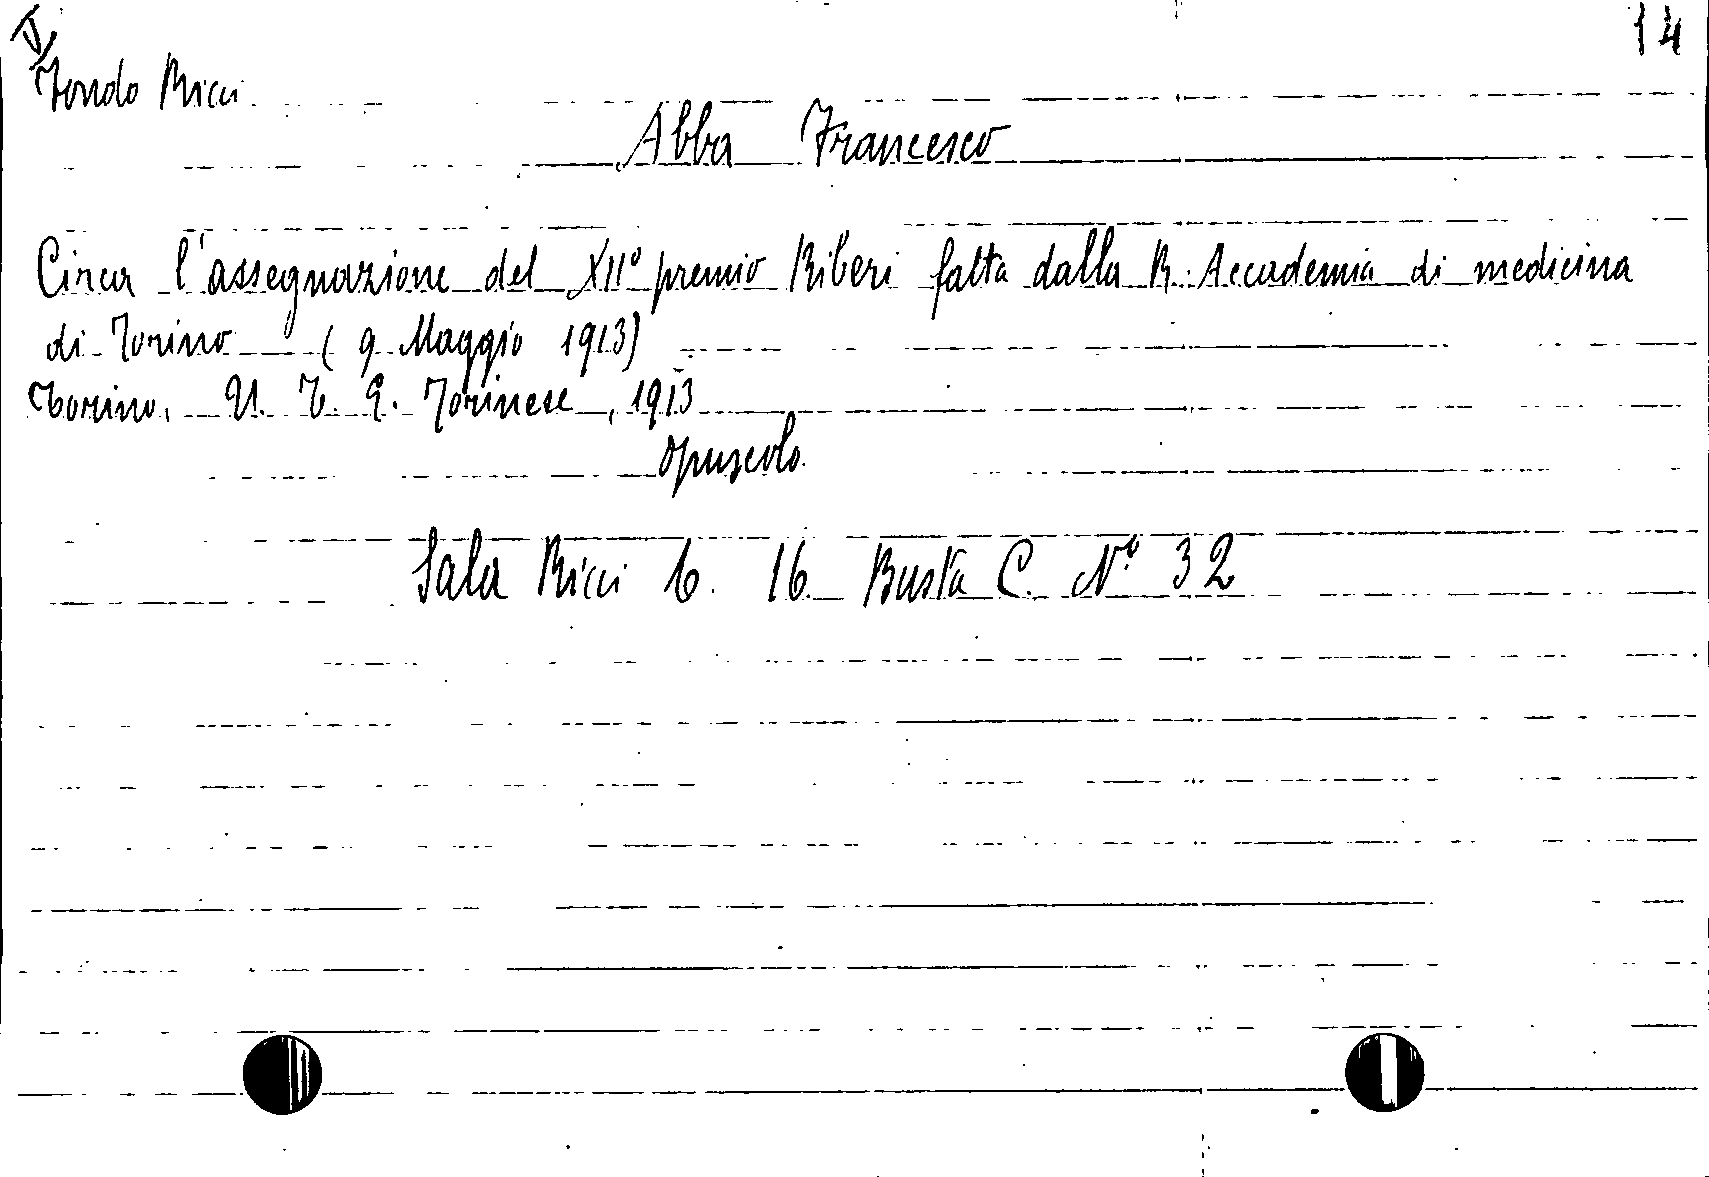 V
14
Fondo Ricci
Abba Francesco
Circa l'assegnazione del XII° premio Riberi fatta dalla R. Accademia di medicina
di Torino (9 Maggio 1913)
Torino, U. T. E. Torinese, 1913
opuscolo.
Sala Ricci 6. 16 Busta C. N° 32